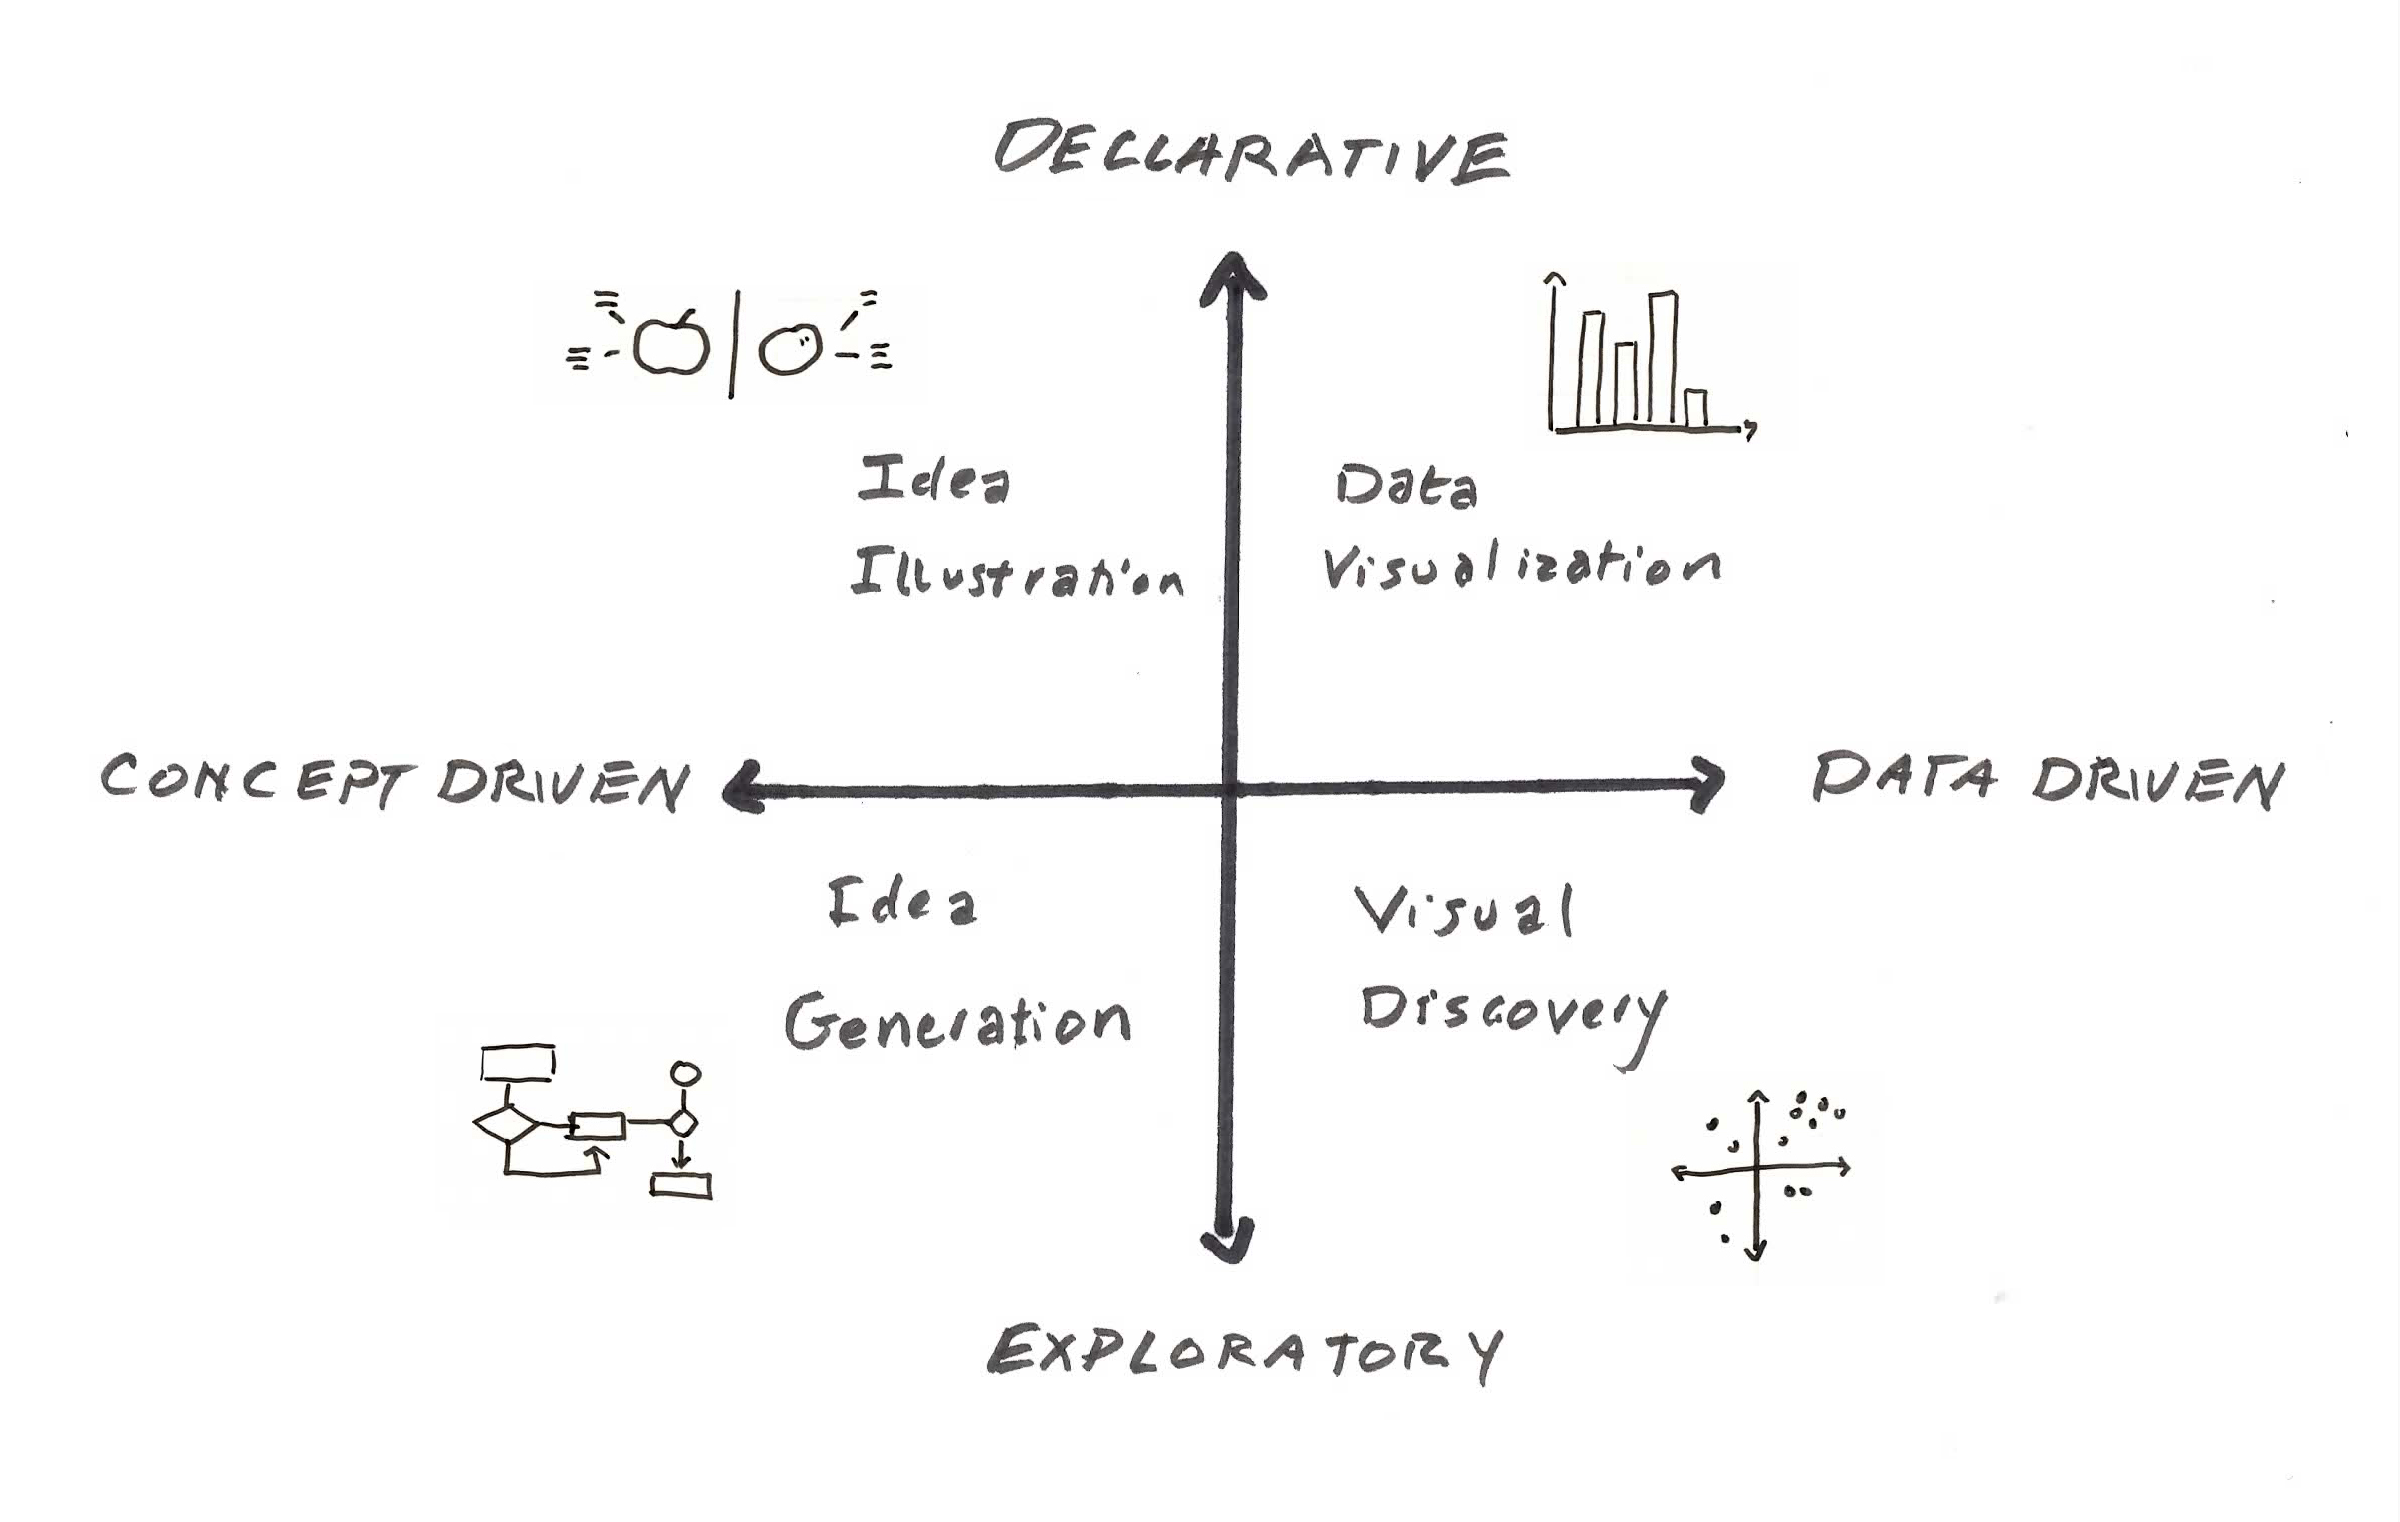 DECLARATIVE
Idea
Illustration
Data
Visualization
CONCEPT DRIVEN
DATA DRIVEN
Idea
Generation
Visual
Discovery
EXPLORATORY